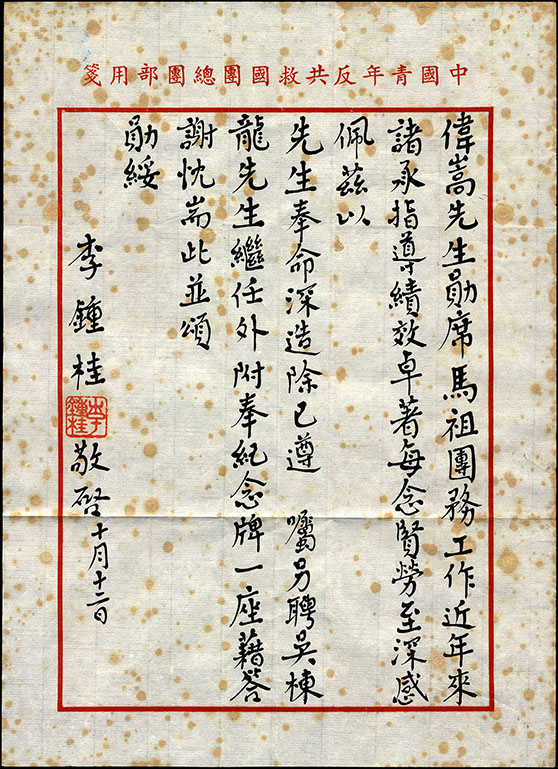 中國青年反共救國團總團部用箋
偉嵩先生勛席馬祖團務工作近年來
諸承指導績效卓著每念賢勞至深感
佩茲以
先生奉命深造除已遵　囑另聘吳棟
龍先生繼任外附奉紀念牌一座藉答
謝忱耑此並頌
勛綏
李鍾桂
李鍾桂
敬啓十月十二日